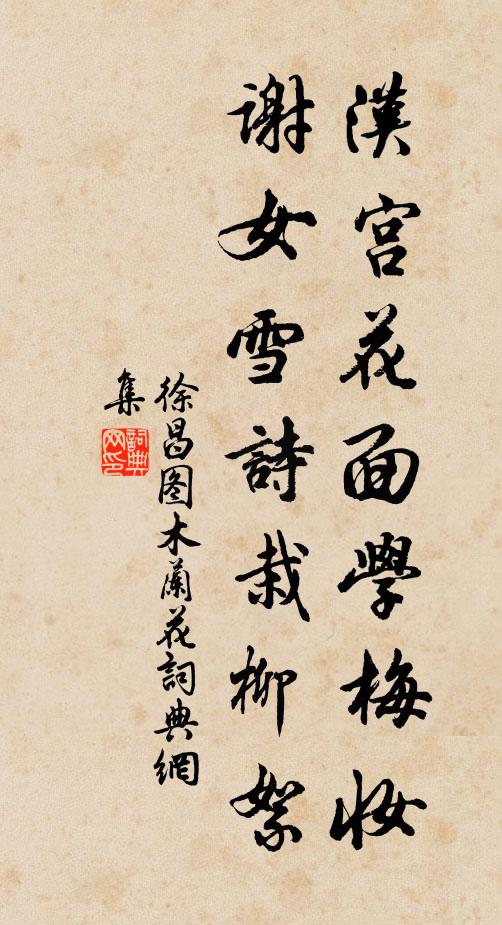 漢宮花面學梅妝
谢女雪詩栽柳絮
徐昌图木蘭花詞典網
集
詞典
网印